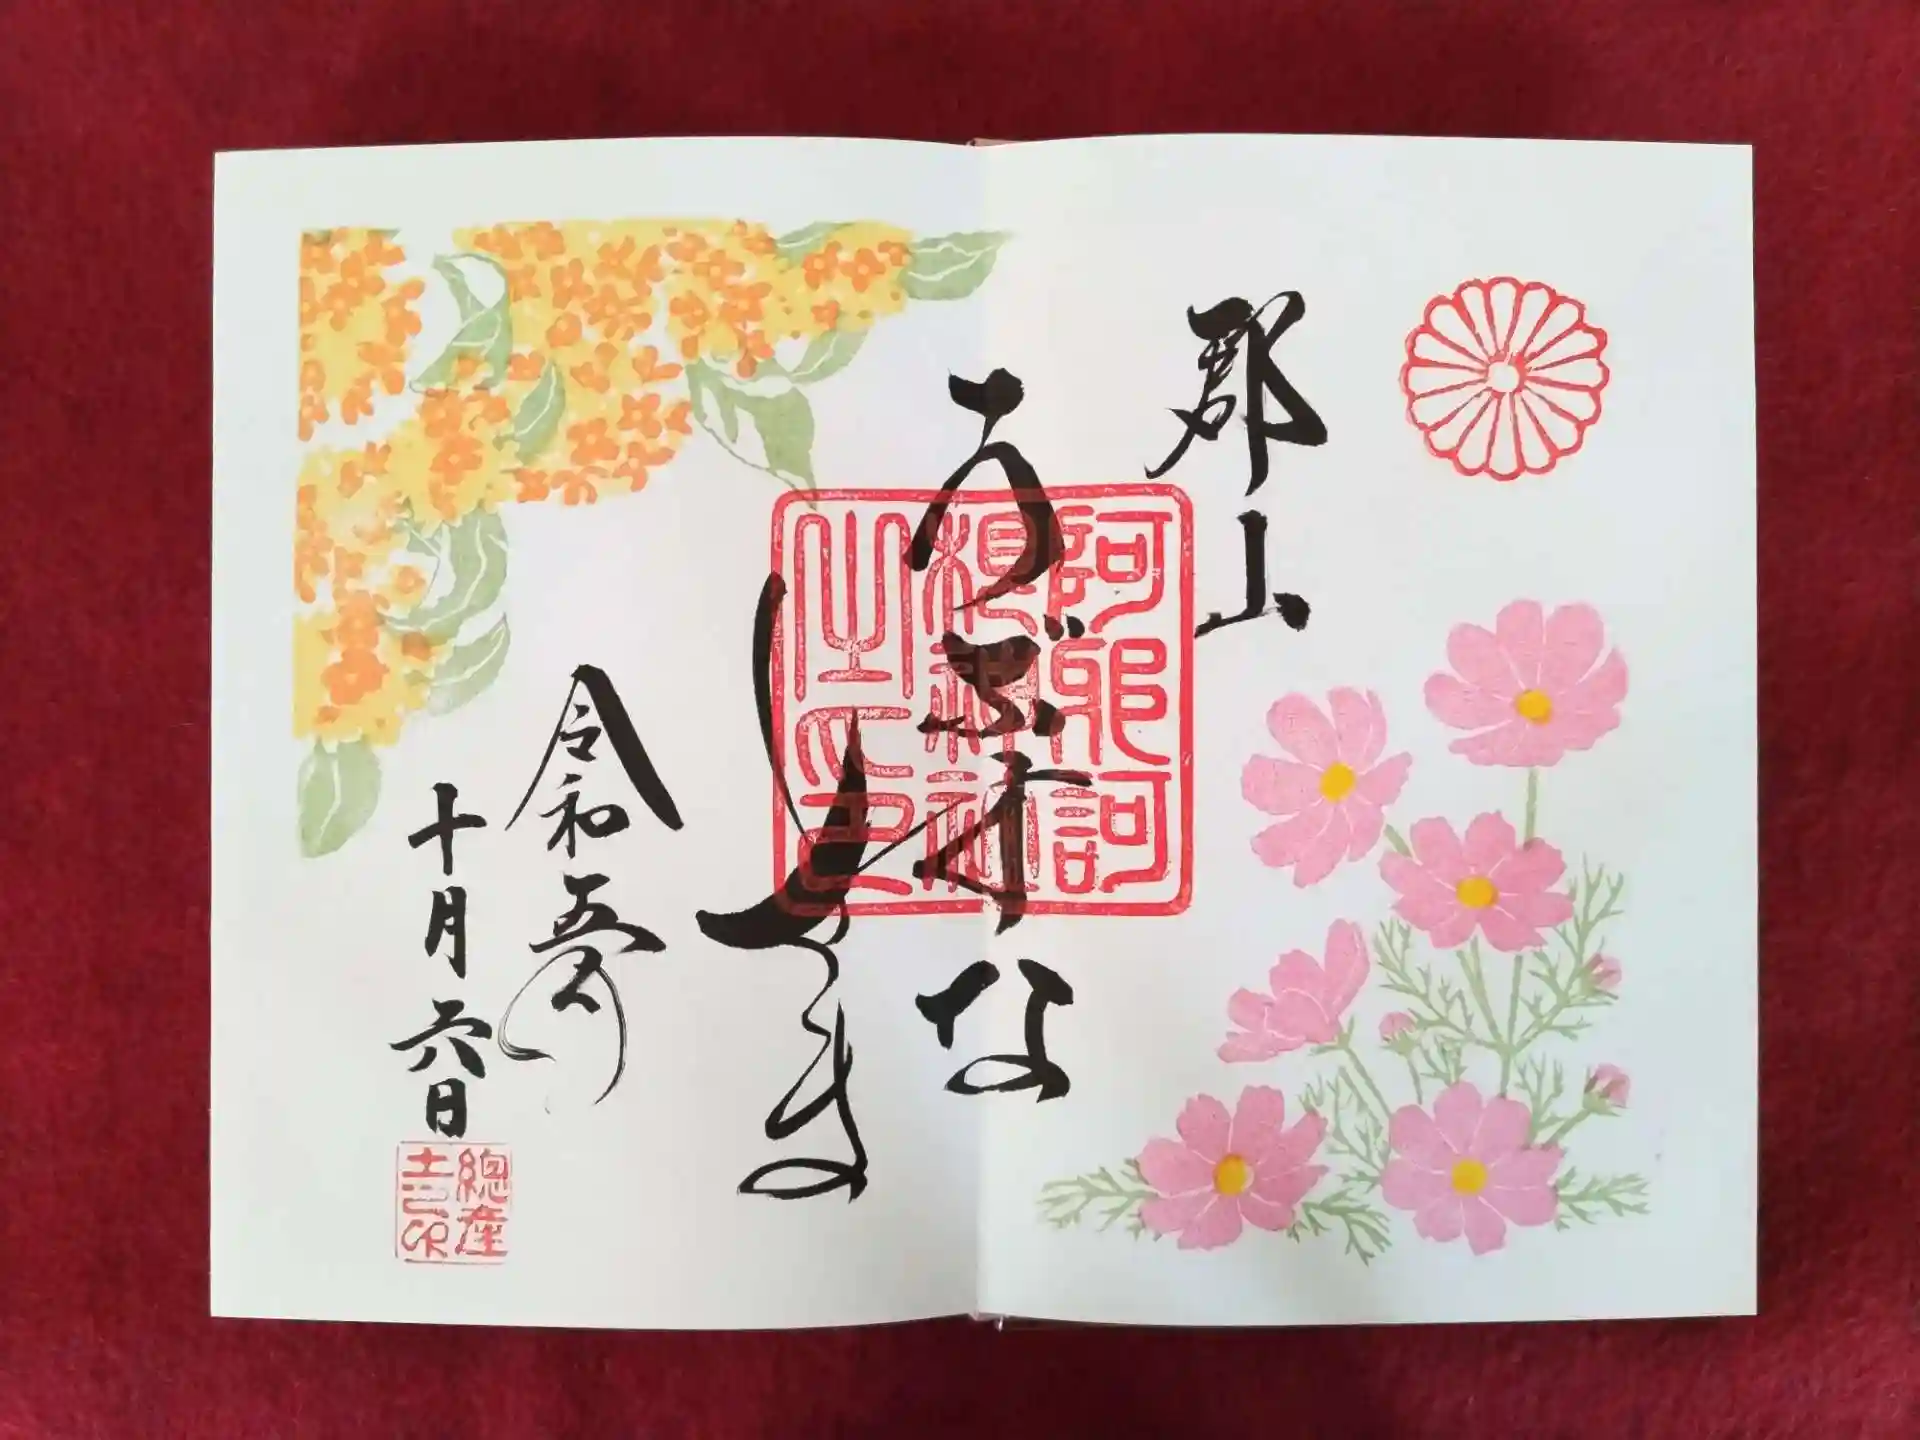 郡山
うぶすな
阿邪訶
根神社
之印
令和五年
十月六日
總産
土之印